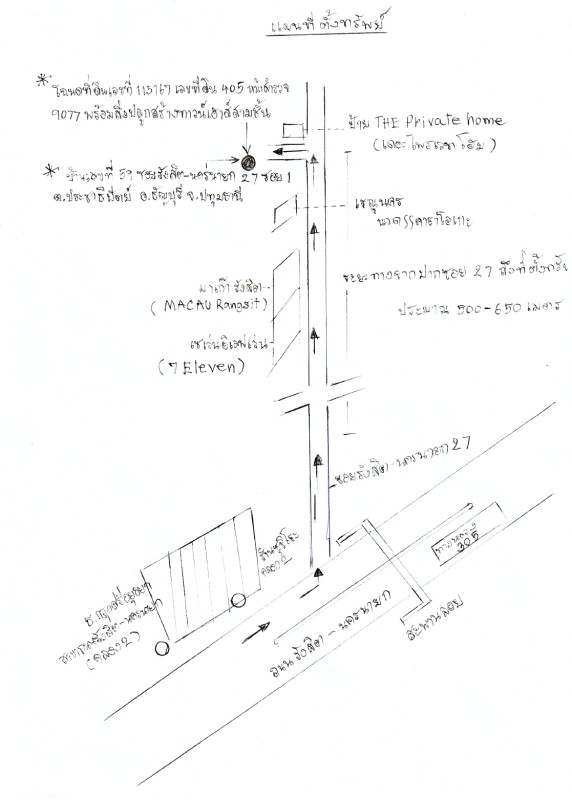 แผนที่ตั้งทรัพย์
* โฉนดที่ดินเลขที่ 115767 เลขที่ดิน 405 หน้าสำรวจ
9077 พร้อมสิ่งปลูกสร้างทาวน์เฮาส์สามชั้น
ป้าย THE Private home
(เดอะไพรเวทโฮม)
* บ้านเลขที่ 59 ซอยรังสิต-นครนายก 27 ซอย 1
ต.ประชาธิปัตย์ อ.ธัญบุรี จ.ปทุมธานี
นวด คาราโอเกะ
ระยะทางจากปากซอย 27 ถึงที่ตั้งทรัพย์
ประมาณ 500-650 เมตร
มาเก๊ารังสิต
(MACAU Rangsit)
เซเว่นอีเลฟเว่น
(7 Eleven)
ซอยรังสิต-นครนายก 27
ทางหลวง
305
คลอง 2
ธ.กรุงศรีอยุธยา
สาขารังสิต-นครนายก
(คลอง 2)
ถนนรังสิต-นครนายก
สะพานลอย